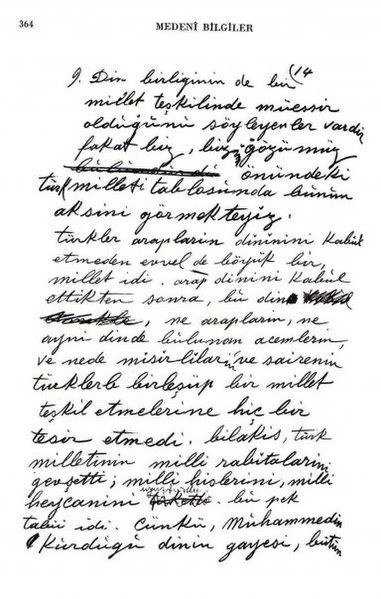 364 MEDENÎ BİLGİLER
(14
9. Din birliginin de bir
millet teşkilinde müessir
olduğunu söyleyenler vardır
fakat biz, bizim gözümüz
önündeki
türk milleti tablosunda bunun
aksini görmekteyiz.
türkler arapların dinini kabul
etmeden evvel de böyük bir
millet idi. arap dinini kabul
ettikten sonra, bu din
, ne arapların, ne
ayni dinde bulunan acemlerin,
ve nede mısırlıların ve sairenin
türklerle birleşüp bir millet
teşkil etmelerine hiç bir
tesir etmedi. bilakis, türk
milletinin milli rabıtalarını
gevşetti; milli hislerini, milli
heyecanını uyuşturdu. bu pek
tabii idi. Çünkü, Muhammedin
Kurduğu dinin gayesi, bütün